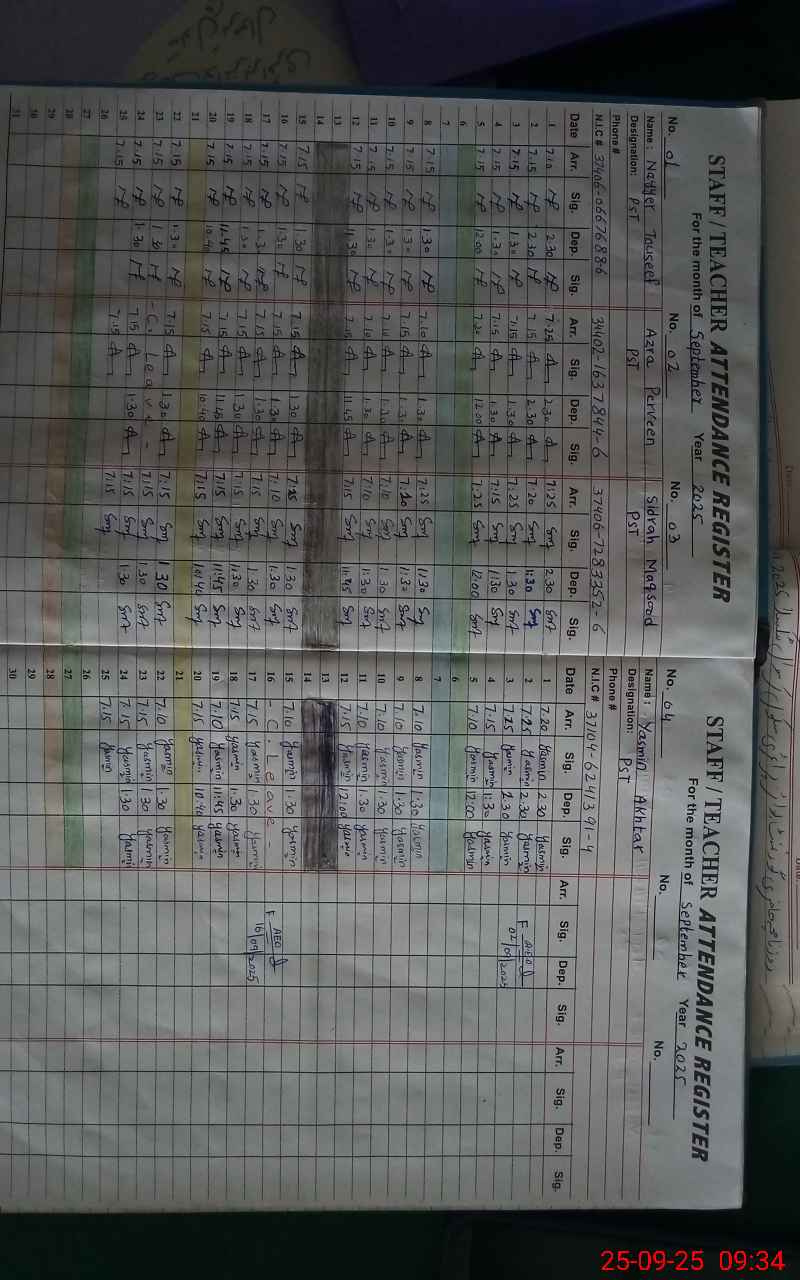 STAFF / TEACHER ATTENDANCE REGISTER
For the month of September Year 2025
No. 01 No. 02 No. 03
Name: Nayyer Touseef Azra Perveen Sidrah Maqsood
Designation: PST PST PST
Phone #
N.I.C # 37406-06676886 34402-1637844-6 37406-7283352-6
Date Arr. Sig. Dep. Sig. Arr. Sig. Dep. Sig. Arr. Sig. Dep. Sig.
1 7.10 2.30 7.25 2.30 7:25 2.30
2 7.15 2.30 7.15 2.30 7:20 1:30
3 7.15 1.30 7.15 1.30 7:25 1.30
4 7.15 1.30 7.15 1.30 7:15 1:30
5 7.15 12.00 7.20 12.00 7:25 12:00
6
7
8 7.15 1.30 7.10 1.30 7:25 1:30
9 7.15 1.30 7.15 1.30 7:20 1:30
10 7.15 1.30 7.10 1.30 7:10 1:30
11 7.15 1.30 7.10 1.30 7:10 1:30
12 7.15 11.30 7.15 11.45 7:15 11:45
13
14
15 7.15 1.30 7.15 1.30 7:15 1:30
16 7.15 1.30 7.15 1.30 7:10 1:30
17 7.15 1.30 7.15 1.30 7:15 1:30
18 7.15 1.30 7.15 1.30 7:15 1:30
19 7.15 11.45 7.15 11.45 7:15 11:45
20 7.15 10.40 7.15 10.40 7:15 10:40
21
22 7.15 1.30 7.15 1.30 7:15 1:30
23 7.15 1.30 - C. Leave - 7:15 1:30
24 7.15 1.30 7.15 1.30 7:15 1:30
25 7.15 7.15 7:15
26
27
28
29
30
31
STAFF / TEACHER ATTENDANCE REGISTER
For the month of September Year 2025
No. 04 No. No.
Name: Yasmin Akhtar
Designation: PST
Phone #
N.I.C # 37104-6241391-4
Date Arr. Sig. Dep. Sig. Arr. Sig. Dep. Sig. Arr. Sig. Dep. Sig.
1 7.20 Yasmin 2.30 Yasmin
2 7.25 Yasmin 2.30 Yasmin
3 7.25 Yasmin 1.30 Yasmin
4 7.15 Yasmin 1.30 Yasmin
5 7.10 Yasmin 12:00 Yasmin
AEO
02/09/2025
6
7
8 7.10 Yasmin 1:30 Yasmin
9 7.10 Yasmin 1:30 Yasmin
10 7.10 Yasmin 1:30 Yasmin
11 7.10 Yasmin 1.30 Yasmin
12 7.15 Yasmin 12:00 Yasmin
13
14
15 7.10 Yasmin 1.30 Yasmin
16 - C. Leave -
17 7.15 Yasmin 1.30 Yasmin
AEO
16/09/2025
18 7.15 Yasmin 1.30 Yasmin
19 7.10 Yasmin 11:45 Yasmin
20 7.15 Yasmin 10:40 Yasmin
21
22 7.10 Yasmin 1.30 Yasmin
23 7.15 Yasmin 1.30 Yasmin
24 7.15 Yasmin 1:30 Yasmin
25 7.15 Yasmin
26
27
28
29
30
25-09-25 09:34